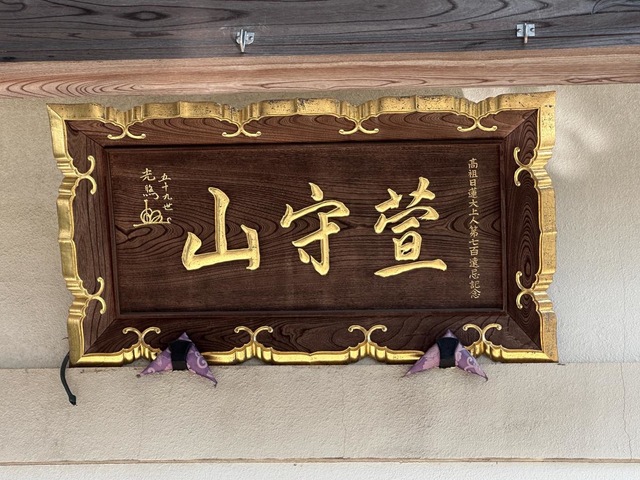 高祖日蓮大上人第七百遠忌記念
萱守山
五十九世
光